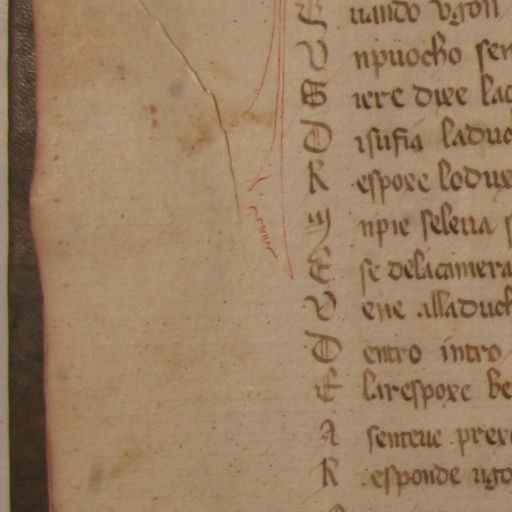 uando ugon
U npuocho sen
G iere dixe lad
D isusia laduc
R espoxe lodux
I npie seleua s
E se delacamera
V ene alladuch
D entro intro
E larespoxe be
A senteue prex
R esponde ugo